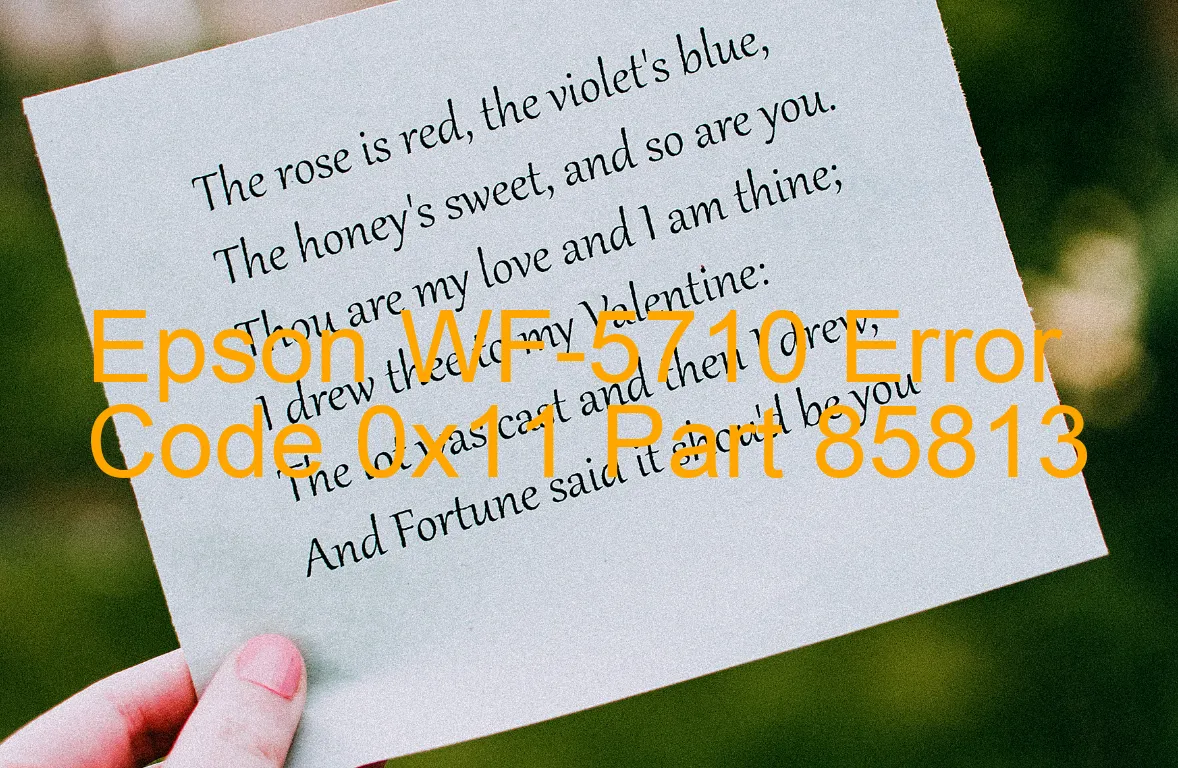 The rose is red, the violet's blue,
The honey's sweet, and so are you.
Thou are my love and I am thine;
I drew thee to my Valentine:
The lot was cast and then I drew,
And Fortune said it shou'd be you
Epson WF-5710 Error
Code 0x11 Part 85813